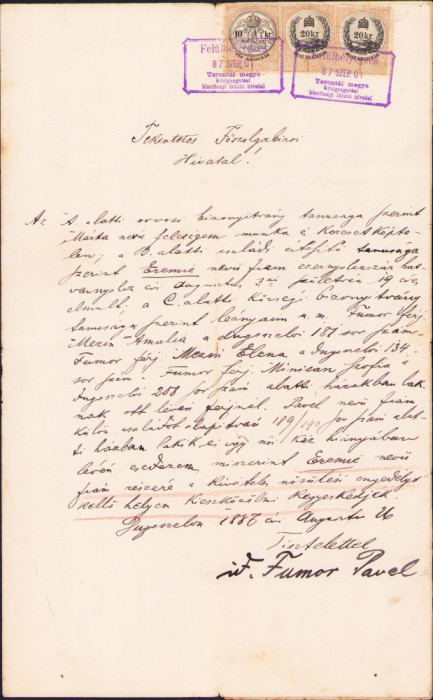 10 kr
20 kr
20 kr
Felülbélyegezve
87 SZEP 01
Torontál megye
Közigazgatási
bizottsági iktató hivatal
Felülbélyegezve
87 SZEP 01
Torontál megye
Közigazgatási
bizottsági iktató hivatal
Tekintetes Főszolgabirói
Hivatal!
Az A. alatti orvosi bizonyitvány tanusága szerint
Márta nevü feleségem munka és keresetképte
len; a B. alatti családi értesitő tanusága
szerint Eremie nevü fiam ezernyolczszáz hat
vannyolcz évi Augusztus 3án született 19 éves
elmult, a C. alatti községi bizonyitvány
tanusága szerint leányaim u. m. Fumor férj
Mezin Amalia a dugoselói 187 sor szám
Fumor férj. Mezin Elena a dugoselói 134.
sor szám. Fumor férj. Minican Zsofia a
dugoselói 208 sor szám alatti házakban lak
nak ott lévén férjnél. Pavel nevü fiam
külön családot alapitván 189/190 sor szám alat
ti házban lakik és igy női kéz hiányában
lévén esedezem, miszerint Eremie nevü
fiam részére a kivételes nősülési engedélyt
kellő helyen kieszközölni kegyeskedjék.
Dugoselon 1887 évi Augustu 26
Tisztelettel
Fumor Pavel